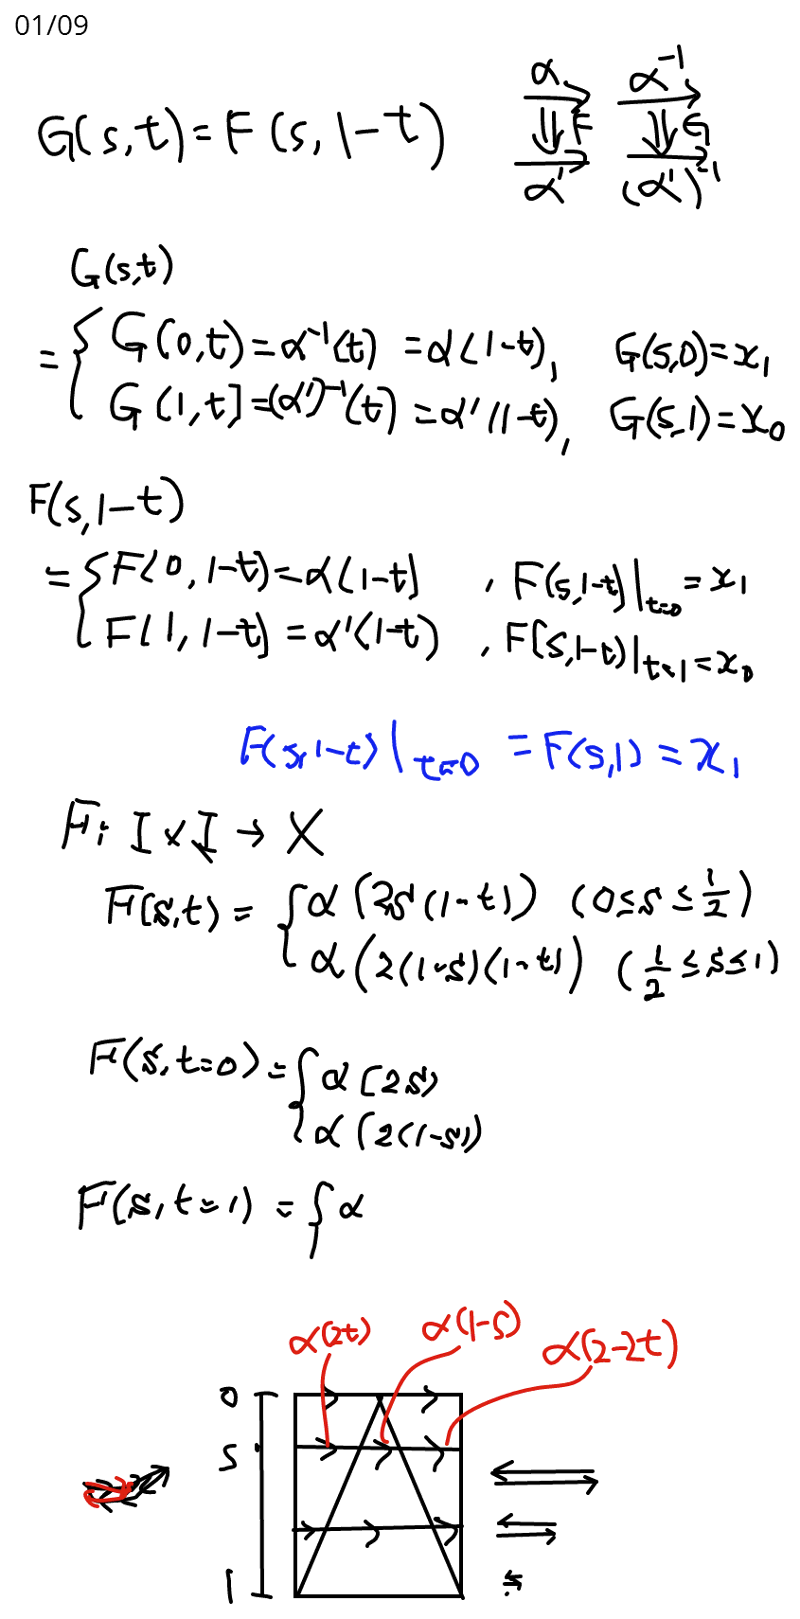 01/09
G(s,t)=F(s,1-t)
α α⁻¹
F G
α' (α')⁻¹
G(s,t)
= { G(0,t)=α⁻¹(t) =α(1-t), G(s,0)=x₁
G(1,t)=(α')⁻¹(t) =α'(1-t), G(s,1)=x₀
F(s,1-t)
= { F(0,1-t)=α(1-t) , F(s,1-t)|t=0 =x₁
F(1,1-t)=α'(1-t) , F(s,1-t)|t=1 =x₀
F(s,1-t)|t=0 =F(s,1)=x₁
F: I×I→X
F(s,t)= { α(2s(1-t)) (0≤s≤1/2)
α(2(1-s)(1-t)) (1/2≤s≤1)
F(s,t=0)= { α(2s)
α(2(1-s))
F(s,t=1)= { α
α(2t) α(1-s) α(2-2t)
0
s
1